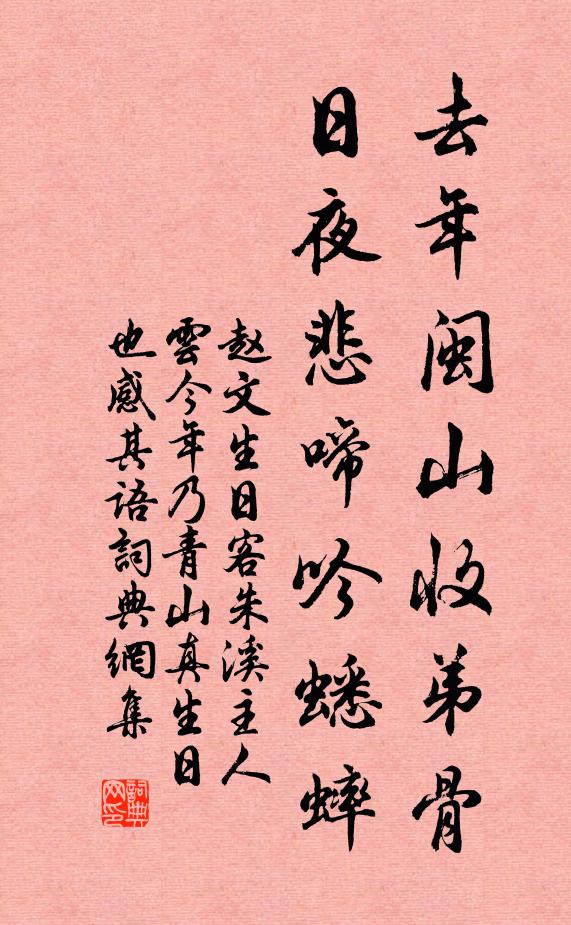 去年闽山收弟骨
日夜悲啼吟蟋蟀
赵文生日客朱溪主人
雲今年乃青山真生日
也感其语詞典網集
詞典
网印